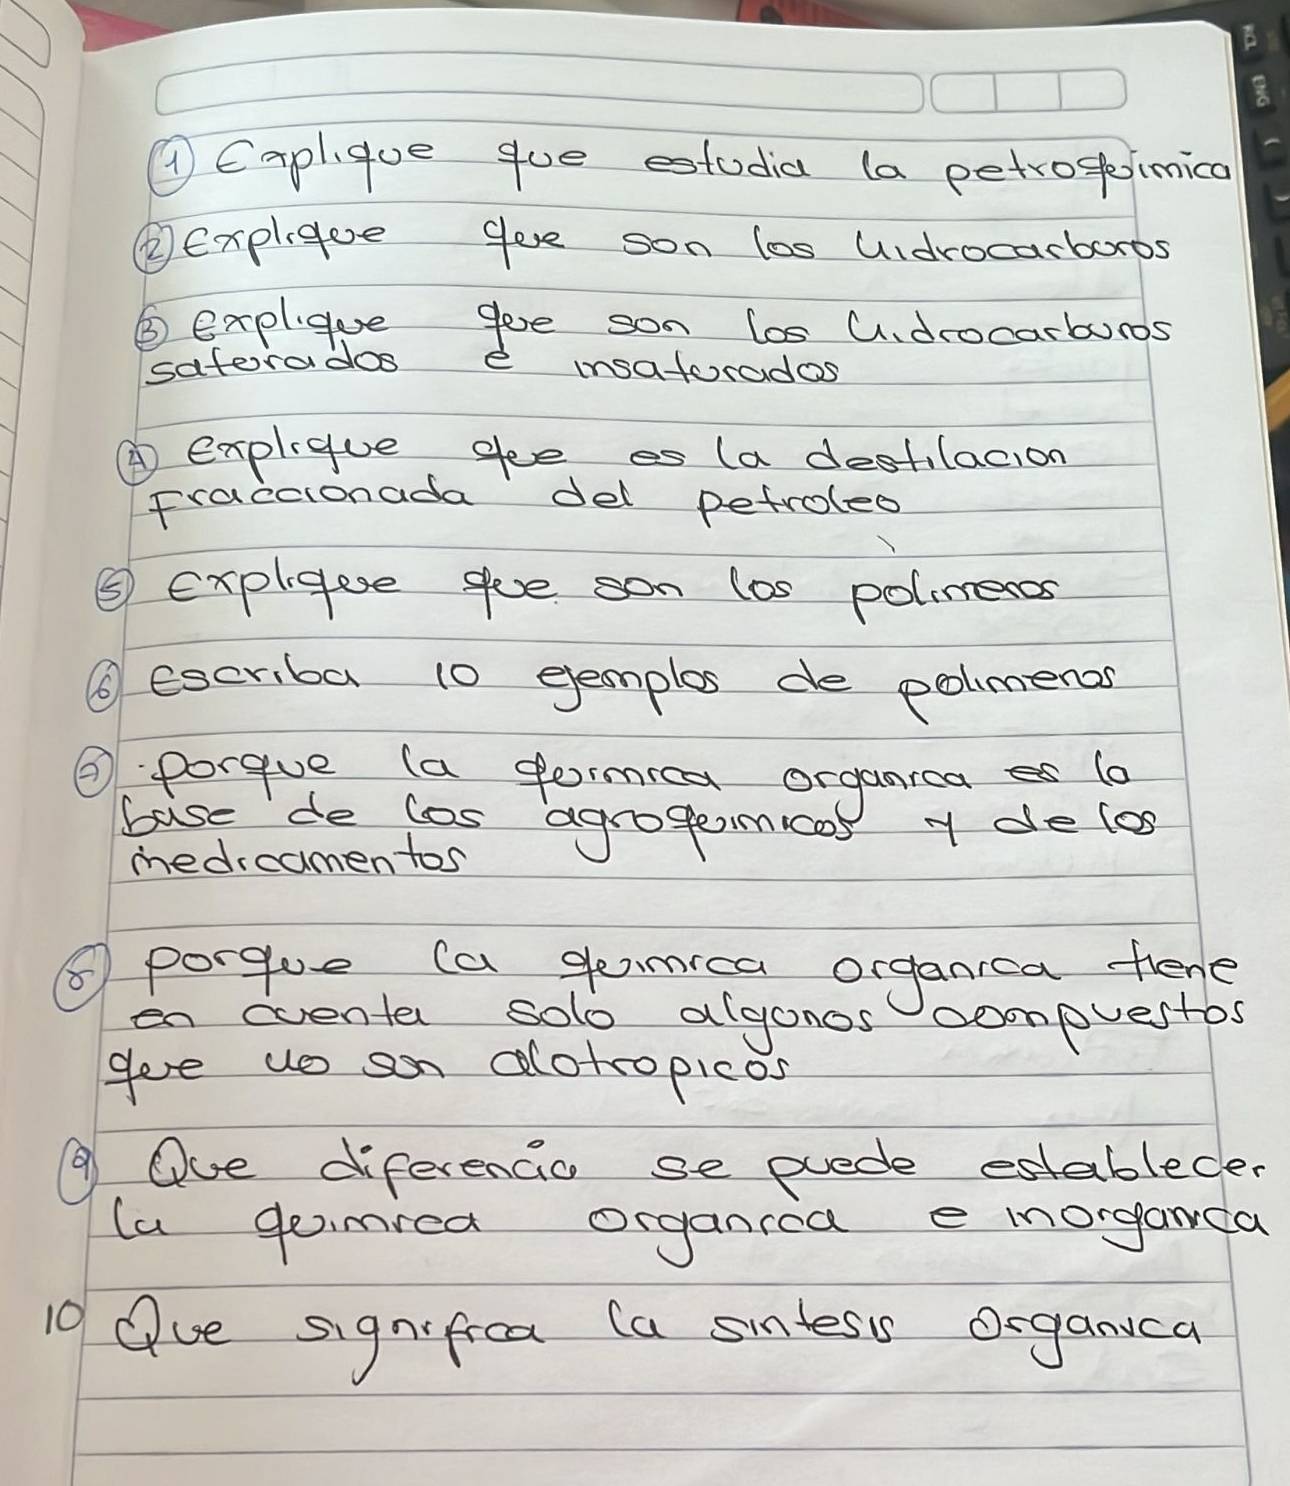 ① Explique que estudia la petroquimica
② Explique que son los hidrocarburos
③ explique que son los hidrocarburos
saturados e insaturados
④ explique que es la destilacion
Fraccionada del petroleo
⑤ Explique que son los polimeros
⑥ Escriba 10 ejemplos de polimeros
⑦ porque la quimica organica es la
base de los agroquimicos y de los
medicamentos
⑧ porque la quimica organica tiene
en cuenta solo algunos compuestos
que no son alotropicos
⑨ Que diferencia se puede establecer
la quimica organica e inorganica
10 Que significa la sintesis Organica
KCL
ENG